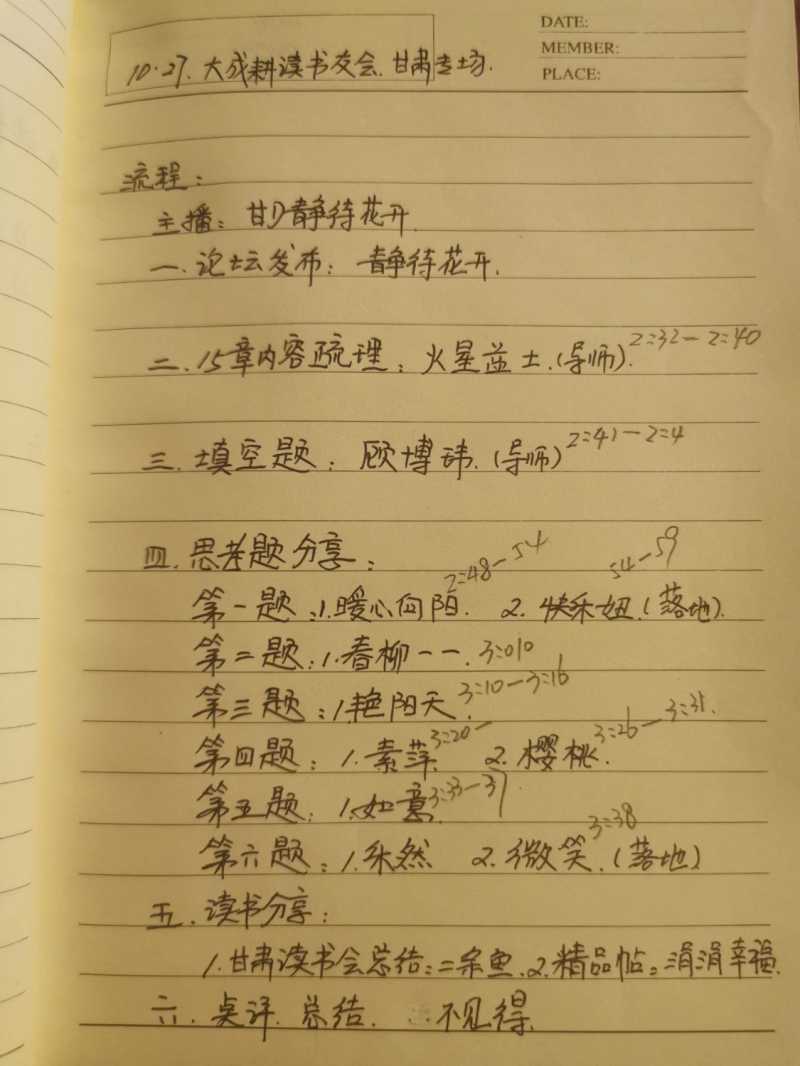 DATE:
MEMBER:
PLACE:
10·27. 大成耕读书友会. 甘肃专场.
流程:
主播: 甘D静待花开
一. 论坛发布: 静待花开.
二. 15章内容疏理: 火星益土.(导师). 2:32-2:40
三. 填空题: 顾博玮. (导师) 2:41-2:4
四. 思考题分享:
第一题:1.暖心向阳. 2:48-54 2. 快乐妞.(落地). 54-59
第二题:1.春柳一一. 3:010
第三题:1.艳阳天. 3:10-3:16
第四题: 1.素萍 3:20- 2. 樱桃. 3:26-3:31.
第五题: 1.如意 3:33-37
第六题: 1.乐然 2. 微笑.(落地) 3:38
五. 读书分享:
1.甘肃读书会总结:二乐鱼.2.精品帖:涓涓幸福.
六. 点评. 总结. 不见得.